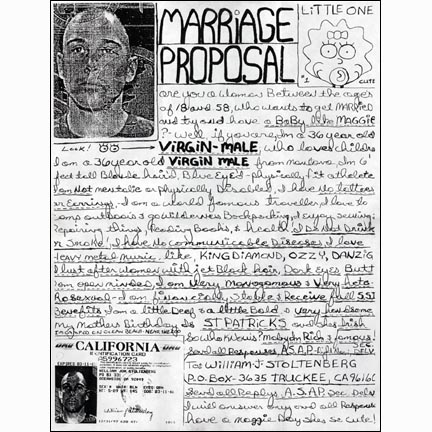 MARRIAGE
PROPOSAL
LiTTLE ONE
#1 CUTE
are you a Woman Between the ages
of 18 and 58, who wants to get MARRIED
and try and have a BaBy like MAGGiE
?- Well if you are, Im a 36 year old
Look! ViRGiN-MALE, who loves children
I am a 36 year old ViRGiN MALE from montana. Im 6'
feet tall Blonde hair'd, Blue Eye'd - physically fit athelete
I am Not mental or physically Disabled, I have No tattoos
or Earrings. I am a world famous traveller, I love to
Camp outdoors & go wilderness Backpacking, I Enjoy sewing,
repairing things, Reading Books, & health, I Do Not Drink
or Smoke! I have No Communicable Diseases. I love
HEAVY Metal Music like, KiNG DiAMOND, OZZY, DANZiG
I lust after women with jet Black hair, Dark Eyes Butt
I am open minded, I am Very Monogamous & Very hete-
Rosexual - I am financially Stable & Receive full SSI
Benefits I am a little Deaf & a little Bald & Very handsome
my Mothers Birthday is ST PATRiCKS and shes Irish
So Who Knows? Maby Im Rich & famous.
Send all Responses A.S.A.P.
To: WiLLiAM J. STOLTENBERG
P.O. BOX- 3635 TRUCKEE, CA 96160
Send all Replys A.S.A.P.
I will answer any and all Responses
have a Maggie Day shes so cute!
CALIFORNIA
IDENTIFICATION CARD
WILLIAM JON STOLTENBERG
PO BOX
OCEANSIDE CA